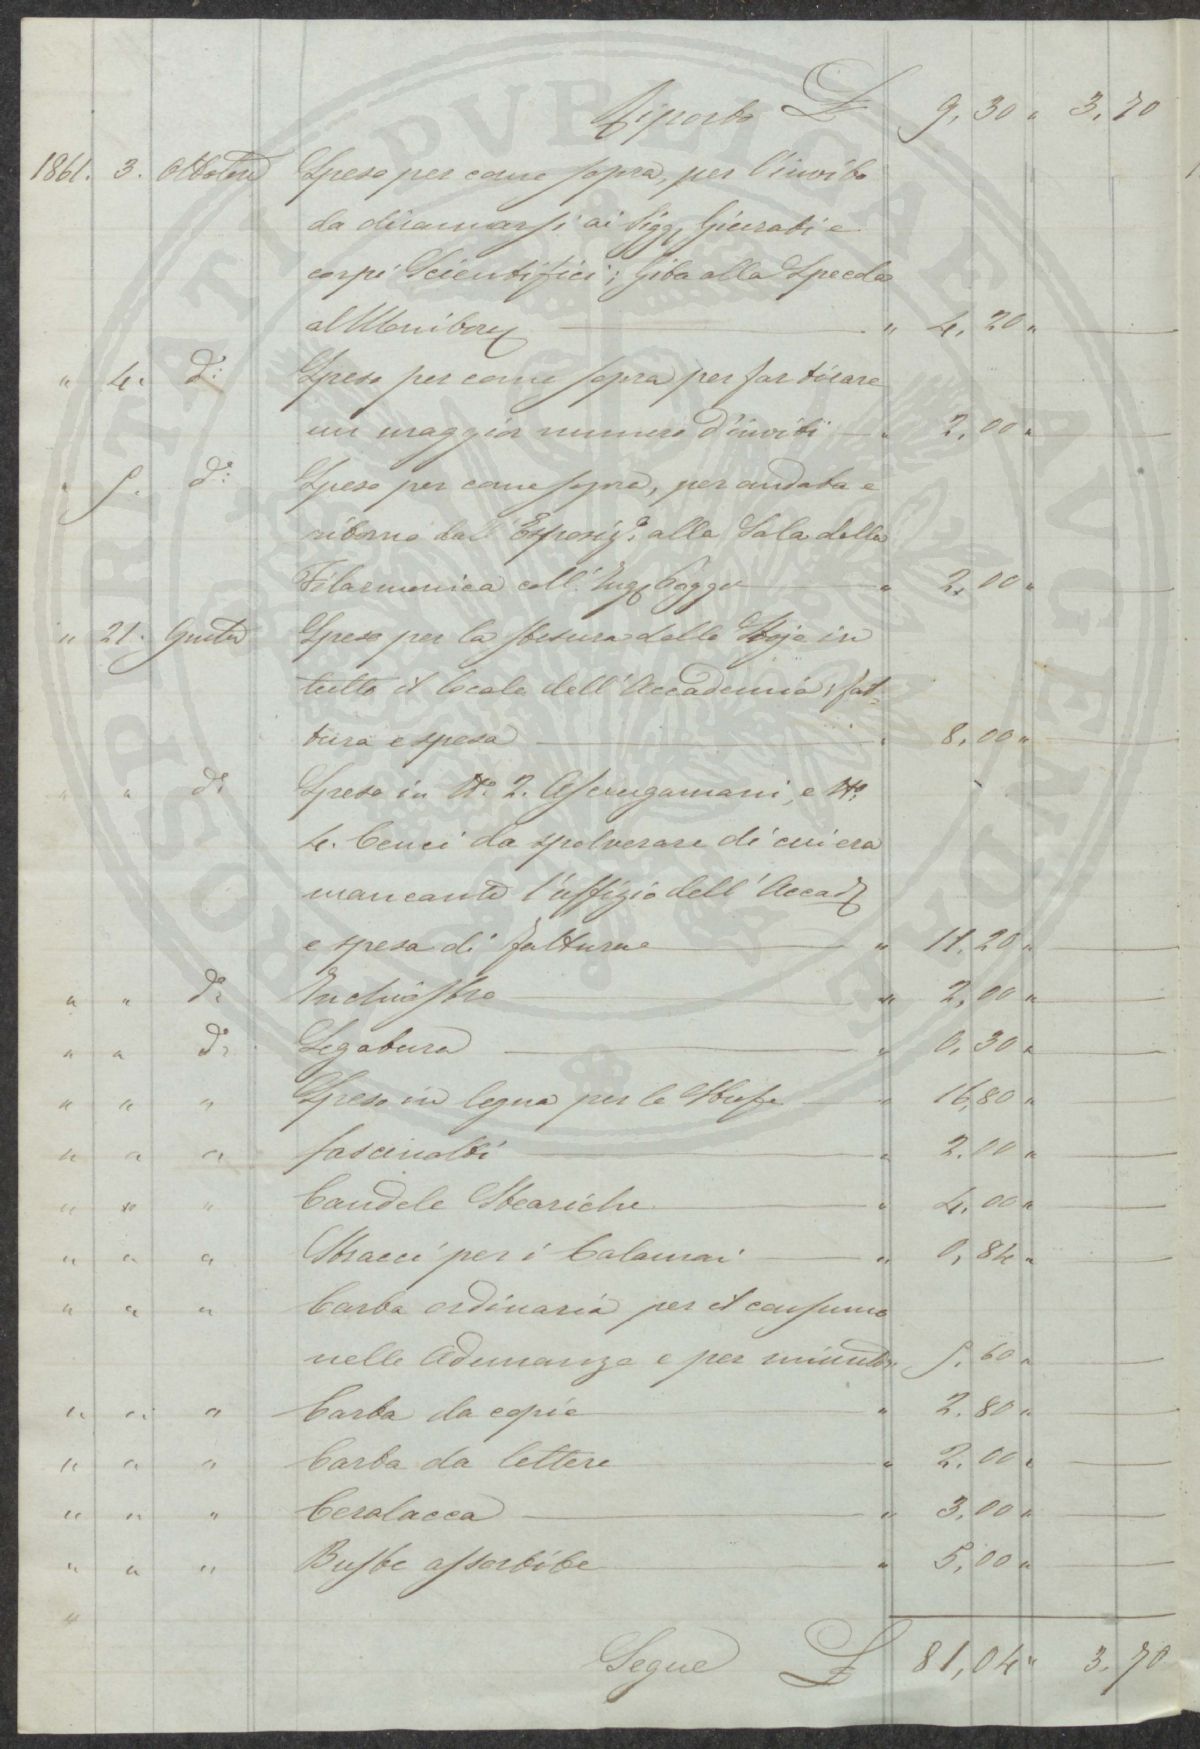 Riporto £ 9,30 " 3,70
1861. 3. Ottobre Spese per come sopra, per l'invito
da diramarsi ai Sigg. Giurati e
corpi Scientifici; Gita alla Specola
al Monitore " 4,20 "
" 4. d.: Spese per come sopra per far tirare
un maggior numero d'inviti " 2,00 "
" 5. d.: Spese per come sopra, per andata e
ritorno dall'Esposiz.e alla Sala della
Filarmonica coll'Ing. " 2,00 "
" 21. Spese per la stesura delle Stoje in
tutto il locale dell'Accademia; fat-
tura e spesa " 8,00 "
" " d.o Spese in N.o 2. Asciugamani, e N.o
4. Cenci da spolverare di cui era
mancante l'uffizio dell'Accad.
e spesa di fattura " 11,20 "
" " d.o Inchiostro " 2,00 "
" " d.o Legatura " 0,30 "
" " " Spese in legna per le Stufe " 16,80 "
" " " fascinotti " 2.00 "
" " " Candele Steariche " 4,00 "
" " " Stracci per i Calamai " 0,84 "
" " " Carta ordinaria per il consumo
nelle Adunanze e per minute " 5.60 "
" " " Carta da copie " 2.80 "
" " " Carta da lettere " 2.00 "
" " " Ceralacca " 3,00 "
" " " Buste assortite " 5,00 "
"
Segue £ 81,04 " 3,70
PROSPERITATI PVBLICAE AVGENDAE